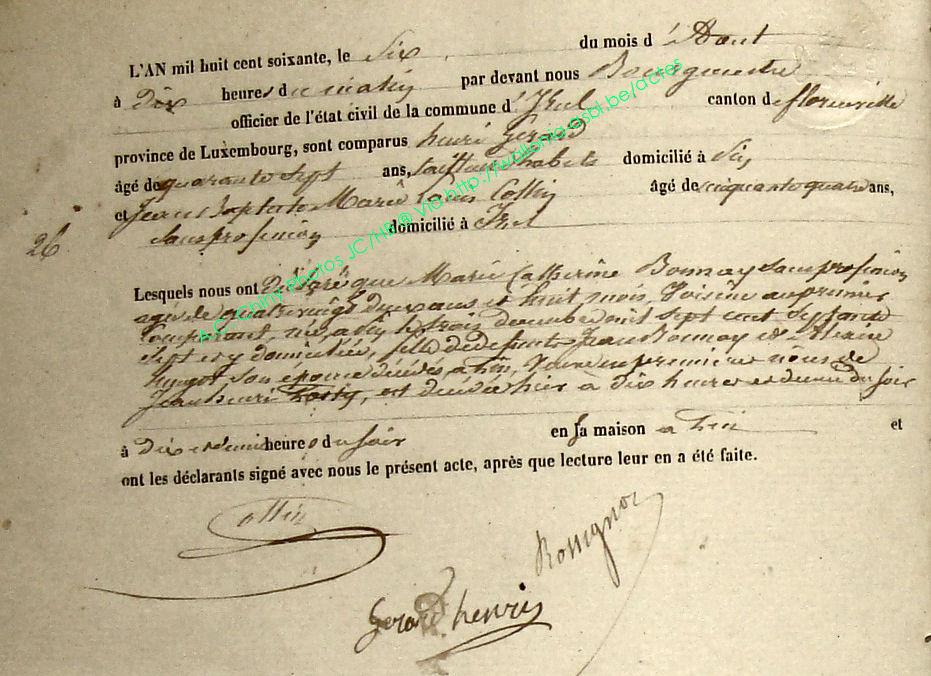 L'AN mil huit cent soixante, le Six du mois d'Aout
à Dix heures du matin par devant nous Bourgmestre
officier de l'état civil de la commune d'Izel canton de florenville
province de Luxembourg, sont comparus henri Gerard
âgé de quarante sept ans, domicilié à
et Jean Baptiste Marie Louis Collin âgé de cinquante quatre ans,
Sans profession domicilié à Izel
26
Lesquels nous ont déclaré que Marie Catherine Bonnay sans profession
agée de quatrevingt deux ans et huit mois, Voisine au premier
Comparant, née à le trois decembre mil sept cent septante
Sept et y domiciliée, fille de defunts Jean Bonnay et
son epouse décédés à Veuve en premiere nôces de
Jean henri est décédée hier a dix heures et demie du soir
à dix et demie heures du soir en sa maison a et
ont les déclarants signé avec nous le présent acte, après que lecture leur en a été faite.
Collin
Rossignon
Gerard henri
A.C. Chiny Photos JC/HB® Via http://wallonia-asbl.be/actes